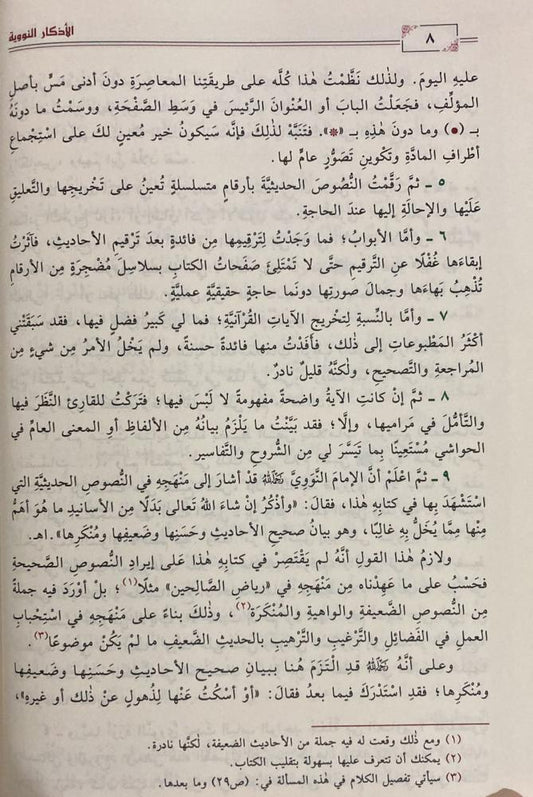 الأذكار النووية
٨
عليهِ اليومَ. ولذٰلك نَظَّمْتُ هٰذا كُلَّه على طريقَتِنا المعاصِرَةِ دونَ أدنى مَسٍّ بأصلِ
المؤلِّفِ، فجَعَلْتُ البابَ أو العُنوانَ الرَّئيسَ في وَسَطِ الصَّفْحَةِ، ووسَمْتُ ما دونَهُ
بـ (●) وما دونَ هٰذِهِ بـ «※». فتَنَبَّهْ لذٰلِكَ فإنَّه سَيكونُ خير مُعينٍ لكَ على اسْتِجْماعِ
أطْرافِ المادَّةِ وتكْوينِ تَصَوُّرٍ عامٍّ لها.
٥ ـ ثمَّ رَقَّمْتُ النُّصوصَ الحديثيَّةَ بأرقامٍ متسلسلةٍ تُعينُ على تَخْريجِها والتَّعليقِ
عَلَيْها والإحالَةِ إليها عندَ الحاجةِ.
٦ ـ وأمَّا الأبوابُ؛ فما وَجَدْتُ لِتَرْقيمِها مِن فائدةٍ بعدَ تَرْقيمِ الأحاديثِ، فآثَرْتُ
إبقاءَها غُفْلًا عنِ التَّرقيمِ حتَّى لا تَمْتَلِئَ صَفَحاتُ الكتابِ بسلاسِلَ مُضْجِرَةٍ مِن الأرقامِ
تُذْهِبُ بَهاءَها وجمالَ صورتِها دونَما حاجةٍ حقيقيَّةٍ عمليَّةٍ.
٧ ـ وأمَّا بالنِّسبةِ لِتخْريجِ الآياتِ القُرآنيَّةِ؛ فما لي كَبيرُ فضلٍ فيها، فقد سَبَقَتْني
أكْثَرُ المَطْبوعاتِ إلى ذٰلك، فأفَدْتُ منها فائدةً حسنةً، ولم يَخْلُ الأمْرُ مِن شيءٍ مِن
المُراجعةِ والتَّصحيحِ، ولٰكنَّهُ قليلٌ نادرٌ.
٨ ـ ثمَّ إنْ كانتِ الآيةُ واضحةً مفهومةً لا لَبْسَ فيها؛ فتَرَكْتُ للقارئِ النَّظَرَ فيها
والتَّأمُّلَ في مَراميها، وإلَّا؛ فقد بَيَّنْتُ ما يَلْزَمُ بيانُهُ مِن الألفاظِ أو المعنى العامِّ في
الحواشي مُسْتَعينًا بِما تَيَسَّرَ لي مِن الشُّروحِ والتَّفاسيرِ.
٩ ـ ثمَّ اعْلَمْ أنَّ الإمامَ النَّوَوِيَّ ﷺ قدْ أشارَ إلى مَنْهَجِهِ في النُّصوصِ الحديثيَّةِ التي
اسْتَشْهَدَ بها في كتابِهِ هٰذا، فقالَ: «وأذكُرُ إنْ شاءَ اللهُ تعالى بَدَلًا مِن الأسانيدِ ما هُوَ أهَمُّ
مِنْها مِمَّا يُخَلُّ بِهِ غالِبًا، وهو بيانُ صحيحِ الأحاديثِ وحَسَنِها وضَعيفِها ومُنْكَرِها». اهـ.
ولازمُ هٰذا القولِ أنَّهُ لم يَقْتَصِرْ في كتابِهِ هٰذا عَلى إيرادِ النُّصوصِ الصَّحيحةِ
فحَسْبُ على ما عَهِدْناه مِن مَنْهَجِهِ في «رياضِ الصَّالِحينَ» مثلًا(١)؛ بلْ أوْرَدَ فيه جملةً
مِن النُّصوصِ الضَّعيفةِ والواهيةِ والمُنْكَرَةِ(٢)، وذٰلكَ بناءً على مَنْهَجِهِ في اسْتِحْبابِ
العملِ في الفَضائلِ والتَّرغيبِ والتَّرْهيبِ بالحديثِ الضَّعيفِ ما لمْ يَكُنْ موضوعًا(٣).
وعلى أنَّهُ قدِ الْتَزَمَ هُنا ببيانِ صحيحِ الأحاديثِ وحَسَنِها وضَعيفِها
ومُنْكَرِها؛ فقدِ اسْتَدْرَكَ فيما بعدُ فقالَ: «أوْ أسْكُتُ عَنْها لِذُهولٍ عنْ ذٰلك أو غيرِهِ»،
(١) ومع ذٰلك وقعت له فيه جملة من الأحاديث الضعيفة، لٰكنَّها نادرة.
(٢) يمكنك أن تتعرف عليها بسهولة بتقليب الكتاب.
(٣) سيأتي تفصيل الكلام في هٰذه المسألة في: (ص٢٩) وما بعدها.